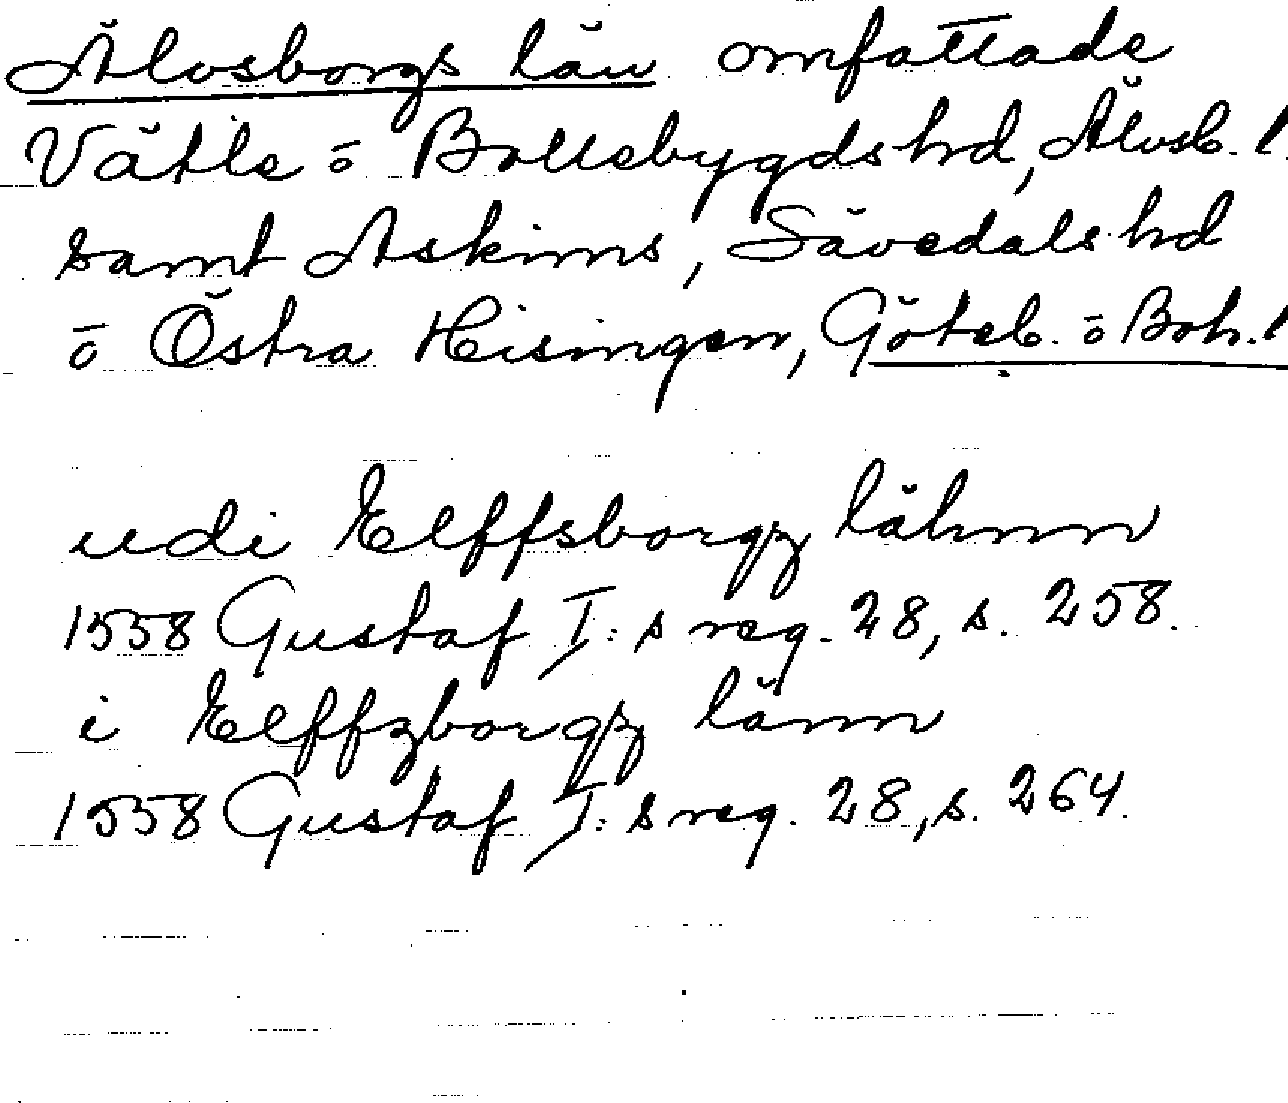 Älvsborgs län omfattade
Vättle o Bollebygds hd, Älvsb. l
samt Askims, Sävedals hd
o Östra Hisingen, Göteb. o Boh. l
udi Elffsborgz lähnn
1558 Gustaf I:s reg. 28, s. 258.
i Elffzborgz länn
1558 Gustaf I:s reg. 28, s. 264.